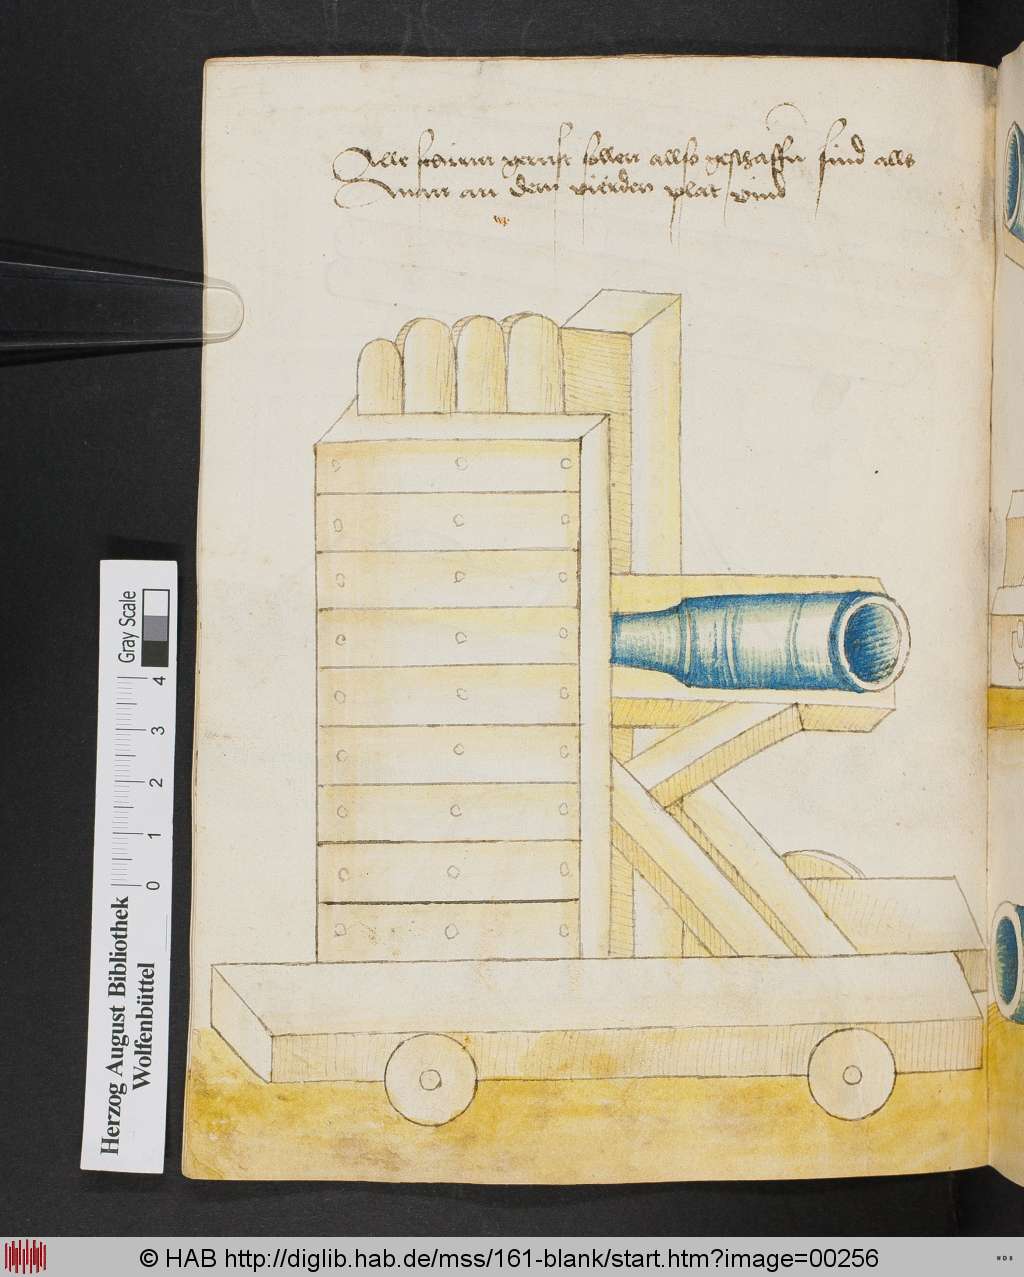 Alle stainnn gerust sollen allso geschaffn sind alls
man an dem vierden plat vind
Gray Scale
4
3
2
1
0
Herzog August Bibliothek
Wolfenbüttel
© HAB http://diglib.hab.de/mss/161-blank/start.htm?image=00256